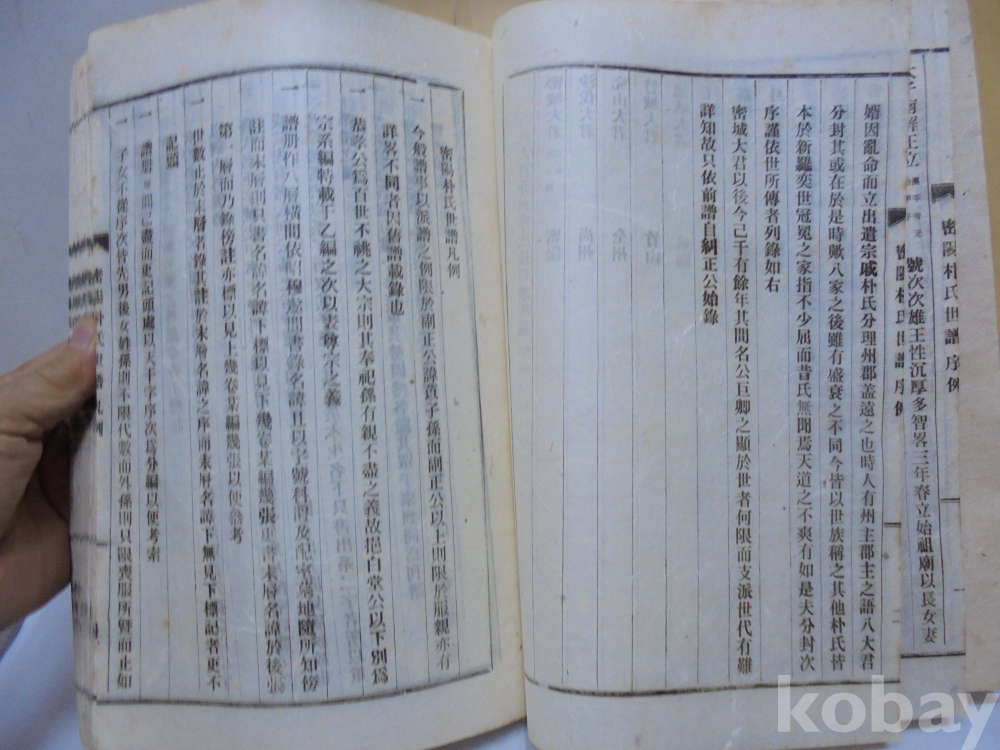 密陽朴氏世譜 序例
號次次雄王性沉厚多智畧三年春立始祖廟以長女妻
密陽朴氏世譜 序例
婿因亂命而立出遺宗戚朴氏分理州郡盖遠之也時人有州主郡主之語八大君
分封其或在於是時歟八家之後雖有盛衰之不同今皆以世族稱之其他朴氏皆
本於新羅奕世冠冕之家指不少屈而昔氏無聞焉天道之不爽有如是夫分封次
序謹依世所傳者列錄如右
密城大君以後今己千有餘年其間名公巨卿之顯於世者何限而支派世代有難
詳知故只依前譜自糾正公始錄
密陽朴氏世譜凡例
一 今般譜事以派譜之例限於副正公諱 子孫而副正公以上則限於服親亦有
詳畧不同者因舊譜載錄也
一 恭孝公爲百世不祧之大宗則其奉祀孫有親不盡之義故挹白堂公以下別爲
宗系編特載于乙編之次以表尊 之義
一 譜册作八層橫間依昭穆 間書錄名諱且以字號科 及配室 地隨所知傍
註而末層則只書名諱名諱下標以見下幾卷某編幾張 書末層名諱於後張
第一層而乃錄傍註亦標以見上幾卷某編幾張以便叅考
一 世數止於末層者錄其註於末層名諱之序而末層名諱下無見下標記者更不
記頭
一 譜册 間已盡而更記頭處以天干字序次爲分編以便考索
一 子女不從序次皆先男後女姓孫則不限代數而外孫則只限喪服所曁而止如
kobay